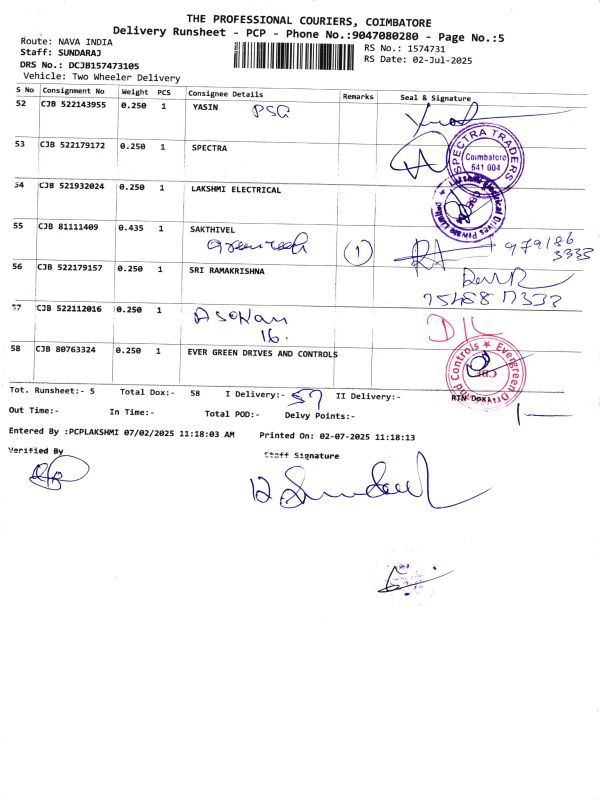 THE PROFESSIONAL COURIERS, COIMBATORE
Delivery Runsheet - PCP - Phone No.:9047080280 - Page No.:5
Route: NAVA INDIA
RS No.: 1574731
Staff: SUNDARAJ
RS Date: 02-Jul-2025
DRS No.: DCJB157473105
Vehicle: Two Wheeler Delivery
S No Consignment No Weight PCS Consignee Details Remarks Seal & Signature
52 CJB 522143955 0.250 1 YASIN PSG
53 CJB 522179172 0.250 1 SPECTRA
SPECTRA TRADERS
Coimbatore
641 004
54 CJB 521932024 0.250 1 LAKSHMI ELECTRICAL
Lakshmi Electrical Drives Private Limited
55 CJB 81111409 0.435 1 SAKTHIVEL
Greentech 1 979186
3333
56 CJB 522179157 0.250 1 SRI RAMAKRISHNA
75488 17333
57 CJB 522112016 0.250 1 ASOKan D/L
16.
58 CJB 80763324 0.250 1 EVER GREEN DRIVES AND CONTROLS
Evergreen Drives and Controls
CBE
Tot. Runsheet:- 5 Total Dox:- 58 I Delivery:- 57 II Delivery:- RTN Dox:- 1
Out Time:- In Time:- Total POD:- Delvy Points:-
Entered By :PCPLAKSHMI 07/02/2025 11:18:03 AM Printed On: 02-07-2025 11:18:13
Verified By Staff Signature